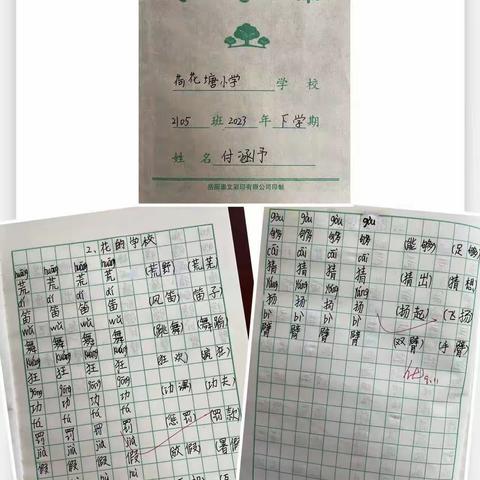 荷花塘小学 学校
2105 班 2023 年 下学期
姓名 付涵予
岳阳惠文彩印有限公司印制
2、花的学校
huāng huāng huāng huāng
荒 荒 荒 荒 (荒野) (荒芜
dí dí dí dí
笛 笛 笛 笛 (风笛) (笛子)
wǔ wǔ wǔ wǔ
舞 舞 舞 舞 (跳舞) (舞蹈)
kuáng kuáng kuáng kuáng
狂 狂 狂 狂
gōng gōng gōng gōng
功 功 功 功 (功课) (功夫
fá fá fá fá
罚 罚 罚 罚 (惩罚) (罚款)
jià jià jià jià
假 假 假 假 (放假) (暑假
gòu gòu gòu gòu
够 够 够 够 (能够) (足够
cāi cāi cāi cāi
猜 猜 猜 猜 (猜出) (猜想
yáng yáng yáng yáng
扬 扬 扬 扬 (扬起) (飞扬
bì bì bì bì
臂 臂 臂 臂 (双臂) (手臂)